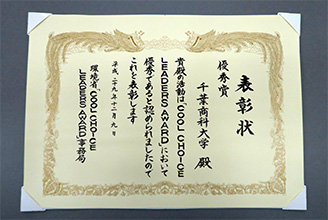 表彰状
優秀賞
千葉商科大学 殿
貴殿の活動は、COOL CHOICE
LEADERS AWARDにおいて
優秀であると認められましたので
これを表彰します
平成二十九年十二月九日
環境省、COOL CHOICE
LEADERS AWARD事務局